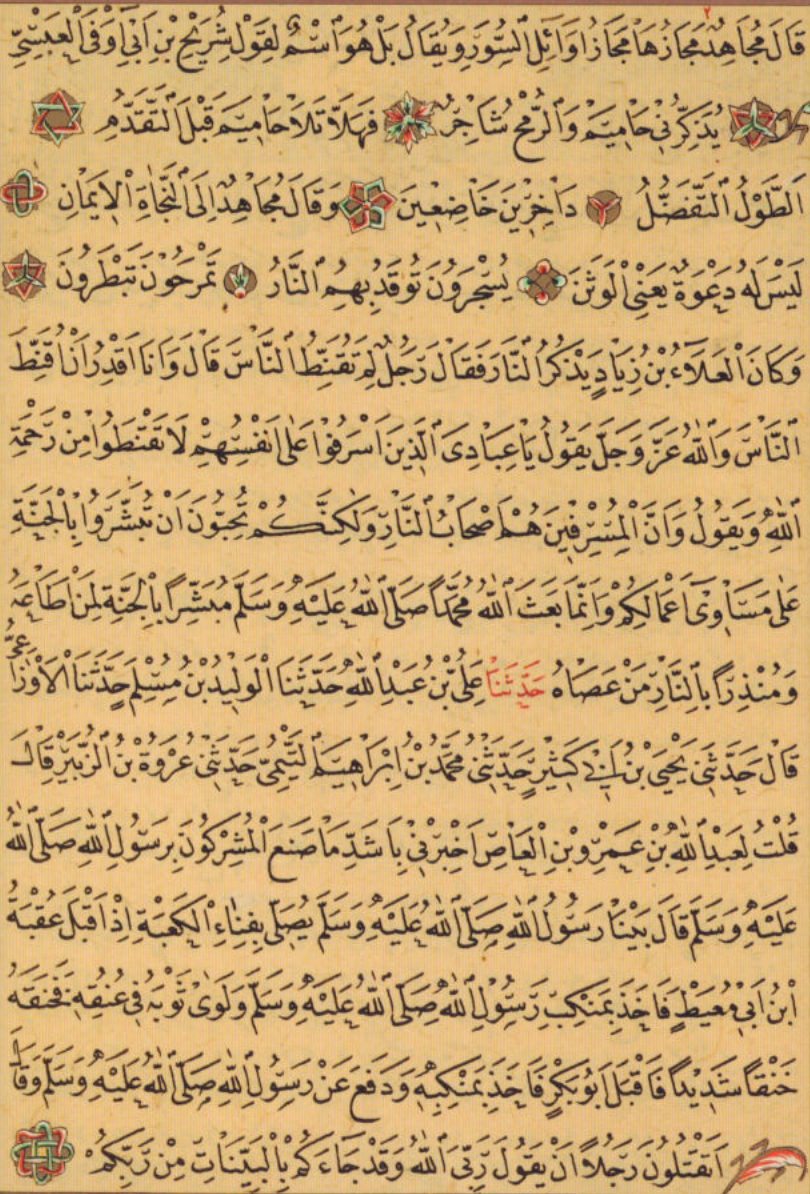 قَالَ مُجَاهِدٌ مَجَازُهَا مَجَازُ أَوَائِلِ السُّوَرِ وَيُقَالُ بَلْ هُوَ اسْمٌ لِقَوْلِ شُرَيْحِ بْنِ أَبِي أَوْفَى الْعَبْسِيِّ
يُذَكِّرُنِي حَامِيمَ وَالرُّمْحُ شَاجِرٌ فَهَلَّا تَلَا حَامِيمَ قَبْلَ التَّقَدُّمِ
الطَّوْلُ التَّفَضُّلُ دَاخِرِينَ خَاضِعِينَ وَقَالَ مُجَاهِدٌ إِلَى النَّجَاةِ الْإِيمَانِ
لَيْسَ لَهُ دَعْوَةٌ يَعْنِي الْوَثَنَ يُسْجَرُونَ تُوقَدُ بِهِمُ النَّارُ تَمْرَحُونَ تَبْطَرُونَ
وَكَانَ الْعَلَاءُ بْنُ زِيَادٍ يَذْكُرُ النَّارَ فَقَالَ رَجُلٌ لِمَ تُقَنِّطُ النَّاسَ قَالَ وَأَنَا أَقْدِرُ أَنْ أُقَنِّطَ
النَّاسَ وَاللَّهُ عَزَّ وَجَلَّ يَقُولُ يَا عِبَادِيَ الَّذِينَ أَسْرَفُوا عَلَى أَنْفُسِهِمْ لَا تَقْنَطُوا مِنْ رَحْمَةِ
اللَّهِ وَيَقُولُ وَأَنَّ الْمُسْرِفِينَ هُمْ أَصْحَابُ النَّارِ وَلَكِنَّكُمْ تُحِبُّونَ أَنْ تُبَشَّرُوا بِالْجَنَّةِ
عَلَى مَسَاوِئِ أَعْمَالِكُمْ وَإِنَّمَا بَعَثَ اللَّهُ مُحَمَّدًا صَلَّى اللَّهُ عَلَيْهِ وَسَلَّمَ مُبَشِّرًا بِالْجَنَّةِ لِمَنْ أَطَاعَهُ
وَمُنْذِرًا بِالنَّارِ مَنْ عَصَاهُ حَدَّثَنَا عَلِيُّ بْنُ عَبْدِ اللَّهِ حَدَّثَنَا الْوَلِيدُ بْنُ مُسْلِمٍ حَدَّثَنَا الْأَوْزَاعِيُّ
قَالَ حَدَّثَنِي يَحْيَى بْنُ أَبِي كَثِيرٍ حَدَّثَنِي مُحَمَّدُ بْنُ إِبْرَاهِيمَ التَّيْمِيُّ حَدَّثَنِي عُرْوَةُ بْنُ الزُّبَيْرِ قَالَ
قُلْتُ لِعَبْدِ اللَّهِ بْنِ عَمْرِو بْنِ الْعَاصِ أَخْبِرْنِي بِأَشَدِّ مَا صَنَعَ الْمُشْرِكُونَ بِرَسُولِ اللَّهِ صَلَّى اللَّهُ
عَلَيْهِ وَسَلَّمَ قَالَ بَيْنَا رَسُولُ اللَّهِ صَلَّى اللَّهُ عَلَيْهِ وَسَلَّمَ يُصَلِّي بِفِنَاءِ الْكَعْبَةِ إِذْ أَقْبَلَ عُقْبَةُ
ابْنُ أَبِي مُعَيْطٍ فَأَخَذَ بِمَنْكِبِ رَسُولِ اللَّهِ صَلَّى اللَّهُ عَلَيْهِ وَسَلَّمَ وَلَوَى ثَوْبَهُ فِي عُنُقِهِ فَخَنَقَهُ
خَنْقًا شَدِيدًا فَأَقْبَلَ أَبُو بَكْرٍ فَأَخَذَ بِمَنْكِبِهِ وَدَفَعَ عَنْ رَسُولِ اللَّهِ صَلَّى اللَّهُ عَلَيْهِ وَسَلَّمَ وَقَالَ
أَتَقْتُلُونَ رَجُلًا أَنْ يَقُولَ رَبِّيَ اللَّهُ وَقَدْ جَاءَكُمْ بِالْبَيِّنَاتِ مِنْ رَبِّكُمْ